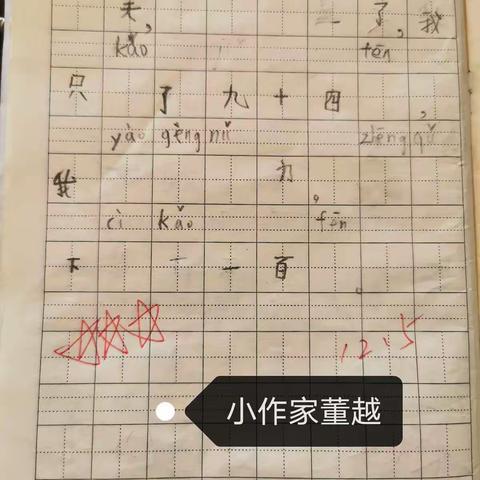 一了，我
kǎo fēn
只了九十四，
yào gèng nǔ zhēng qǔ
我力。
cì kǎo fēn
下一百。
12.5
小作家董越